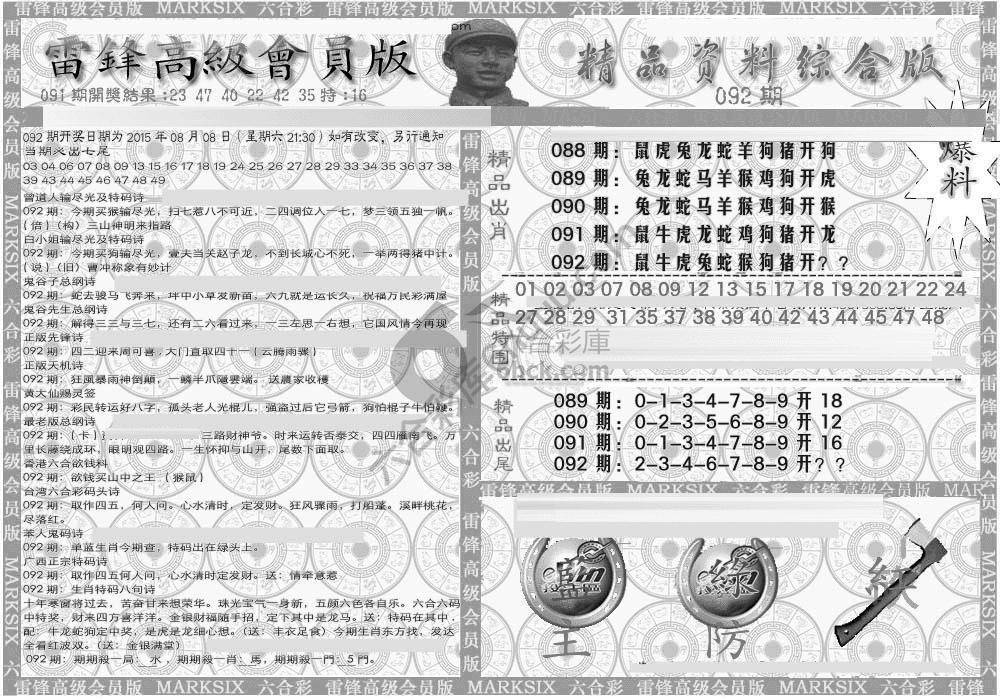 雷锋高级会员版 MARKSIX 六合彩 雷锋高级会员版 MARKSIX 六合彩 雷锋高级会员版 MARKSIX 六合彩 雷锋高级会员版
雷鋒高級會員版
精品资料综合版
091期開獎結果:23 47 40 22 42 35 特:16
092期
092 期开奖日期为 2015 年 08 月 08 日（星期六 21:30）如有改变，另行通知
当期永出七尾
03 04 06 07 08 09 13 15 16 17 18 19 24 25 26 27 28 29 33 34 35 36 37 38
39 43 44 45 46 47 48 49
曾道人输尽光及特码诗
092 期：今期买猴输尽光，扫七惹八不可近，二四调位人一七，梦三领五独一帆。
{倍}（构）三山神明来指路
白小姐输尽光及特码诗
092 期：今期买狗输尽光，壹夫当关赵子龙，不到长城心不死，一举两得猪中计。
{说}（旧）曹冲称象有妙计
鬼谷子总纲诗
092 期：蛇去骏马飞奔来，坪中小草发新苗，六九就是运长久，祝福万民彩满屋
鬼谷先生总纲诗
092 期：解得三三与三七，还有二六看过来，一三左思一右想，它国风情今再现
正版先锋诗
092 期：四二迎来周可喜，大门直取四十一{云腾雨骤}
正版天机诗
092 期：狂風暴雨神倒顛，一鳞半爪隱雲端。送農家收穫
黄大仙赐灵签
092 期：彩民转运好八字，孤头老人光棍儿，强盗过后它弓箭，狗怕棍子牛怕鞭。
最老版总纲诗
092 期：{卡} 三路财神爷。时来运转否泰交，四四雁南飞。万
里长藤绕成环，眼明观四路。一生怀抑与山开，尾数下面取。
香港六合欲钱料
092 期：欲钱买山中之王 （猴鼠）
台湾六合彩码头诗
092 期：取作四五，何人问。心水清时，定发财。狂风骤雨，打船蓬。溪畔桃花，
尽落红。
苯人鬼码诗
092 期：单蓝生肖今期查，特码出在绿头上。
广西正宗特码诗
092 期：取作四五何人问，心水清时定发财。送：情牵意惹
092 期：生肖特码八句诗
十年寒窗将过去，苦奋甘来想荣华。珠光宝气一身新，五颜六色各自乐。六合六码
中特奖，财来四方喜洋洋。金银财福随手招，定下其中是龙马。送：特码在其中，
配：牛龙蛇狗定中奖，是虎是龙细心想。（送：丰衣足食）今期生肖东方找、发达
全看红波双。（送：金银满堂）
092 期：期期殺一局：水，期期殺一肖：馬，期期殺一門：5 門。
精品出肖
088 期：鼠虎兔龙蛇羊狗猪开狗
089 期：兔龙蛇马羊猴鸡狗开虎
090 期：兔龙蛇马羊猴鸡狗开猴
091 期：鼠牛虎龙蛇马鸡猪开龙
092 期：鼠牛虎兔蛇猴狗猪开？？
爆料
精品特围
01 02 03 07 08 09 12 13 15 17 18 19 20 21 22 24
27 28 29 31 35 37 38 39 40 42 43 44 45 47 48
精品出尾
089 期：0-1-3-4-7-8-9 开 18
090 期：0-2-3-5-6-8-9 开 12
091 期：0-1-3-4-7-8-9 开 16
092 期：2-3-4-6-7-8-9 开？？
雷锋高级会员版 MARKSIX 六合彩 雷锋高级会员版 MARK
主
防
六合彩 雷锋高级会员版 MARKSIX 六合彩 雷锋高级会员版